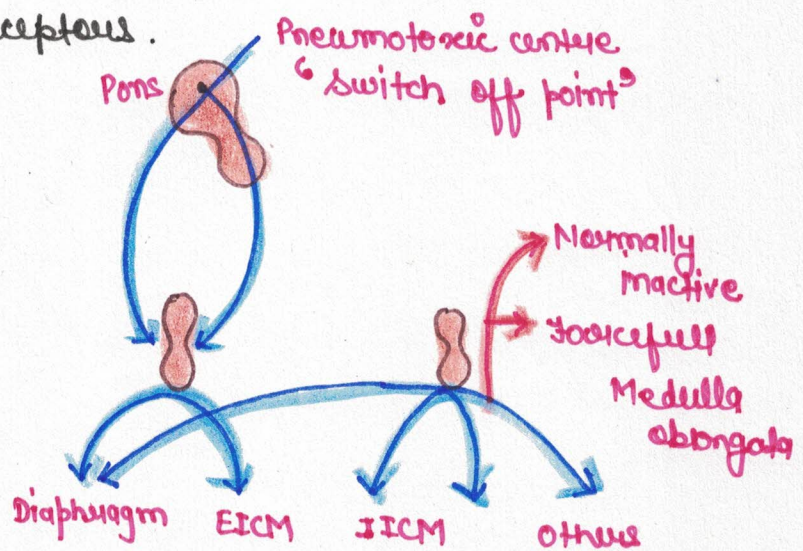 ceptors.
Pneumotoxic centre
Pons "Switch off point"
Normally
inactive
Forcefull
Medulla
oblongata
Diaphragm EICM IICM Others